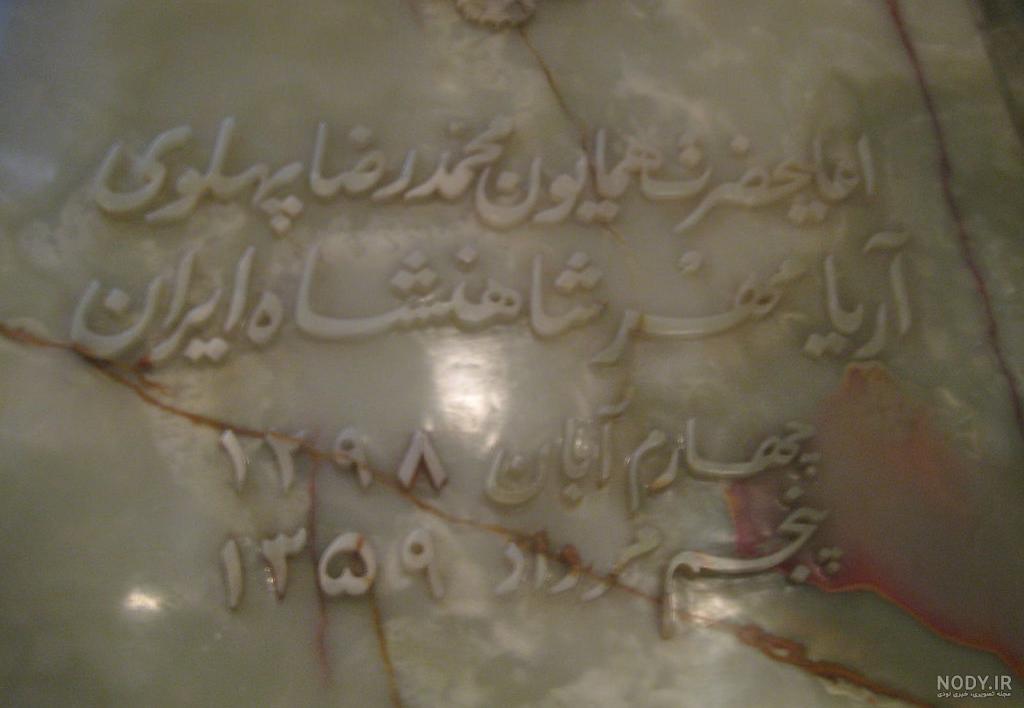 اعلیحضرت همایون محمدرضا پهلوی
آریا مهر شاهنشاه ایران
چهارم آبان ۱۲۹۸
پنجم مرداد ۱۳۵۹
NODY.IR
مجله تصویری، خبری نودی